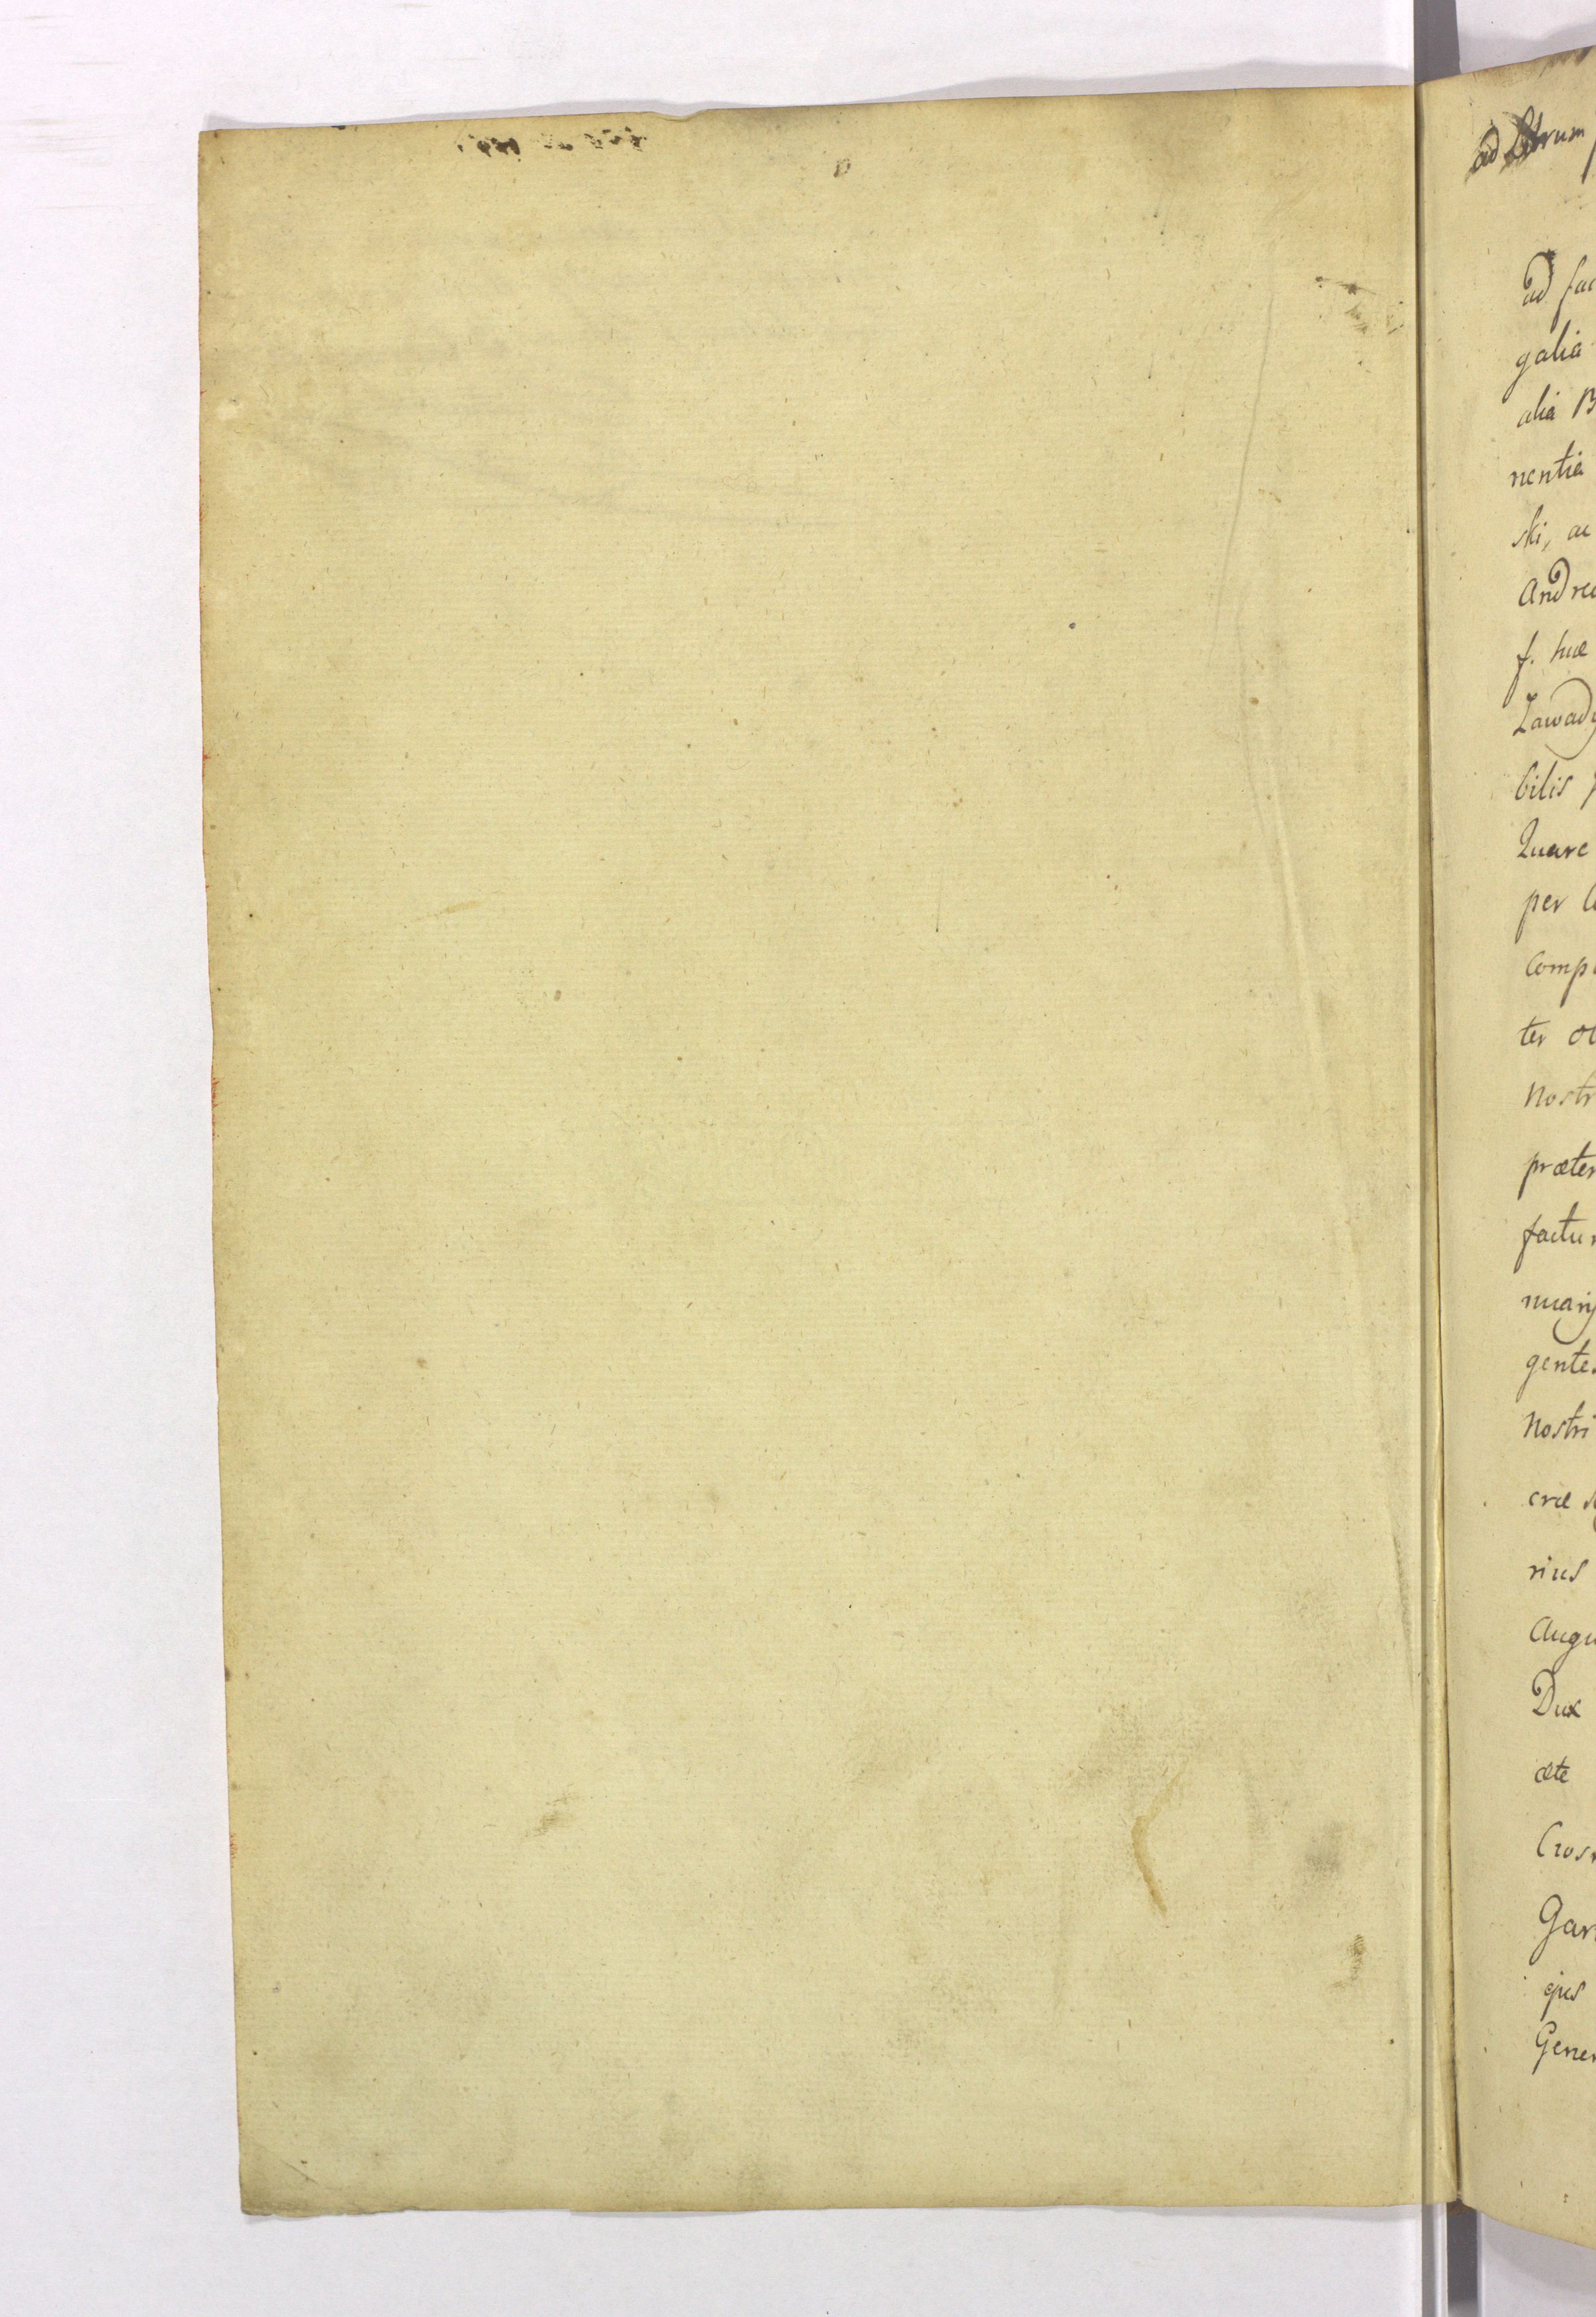 ad Librum
ad fac
galia
alia B
nentia
ski, ac
Andrea
f. huc
Zawady
bilis
Quare
per
Comp
ter ot
Nostr
præter
factur
nuarij
gentes
Nostri
cræ
rius
Augu
Dux
æte
Cros
Gar
ejus
Gener